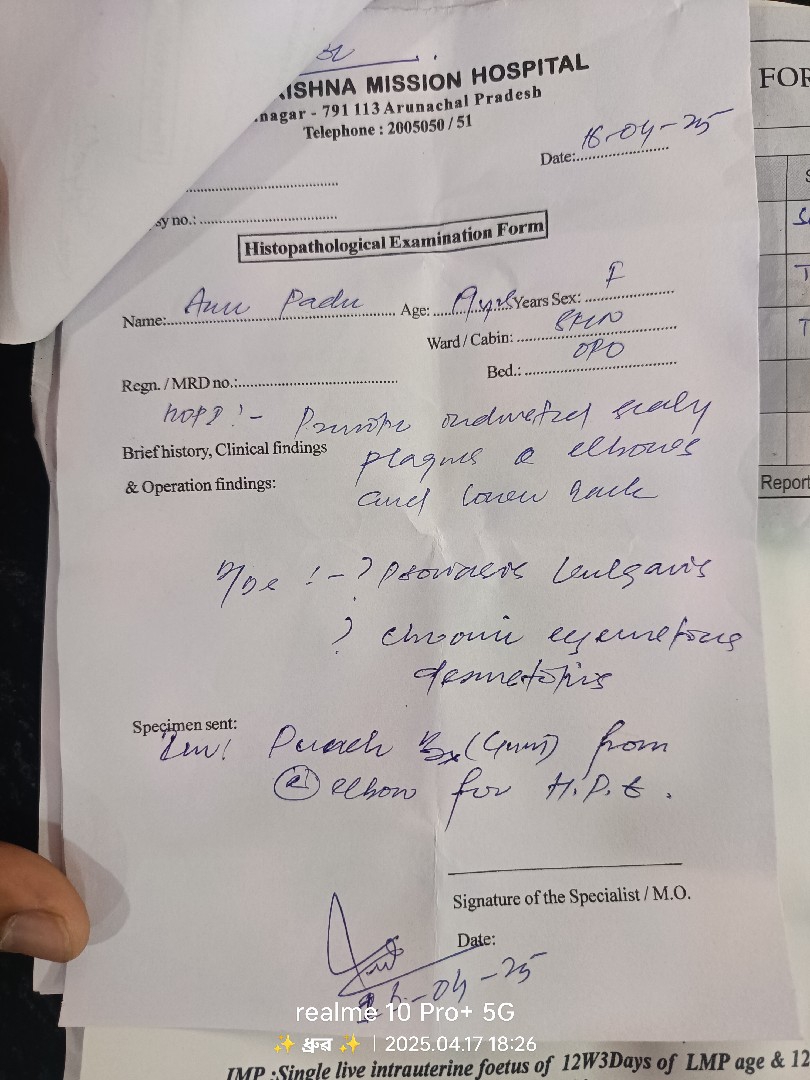 ISHNA MISSION HOSPITAL
nagar - 791 113 Arunachal Pradesh
Telephone : 2005050 / 51
Date: 16-04-25
sy no.:
Histopathological Examination Form
Name: Anu Padu Age: Years Sex: F
Ward / Cabin: SKIN
OPD
Regn. / MRD no.: Bed.:
HOPI :- Pruritic indurated scaly
Brief history, Clinical findings
plaques @ elbows
& Operation findings:
and lower back
:- ? Psoriasis Vulgaris
? chronic eczematous
dermatitis
Specimen sent:
Punch Bx (4mm) from
elbow for H.P.E.
Signature of the Specialist / M.O.
Date:
-04-25
realme 10 Pro+ 5G
✨ ধ্রুব ✨ | 2025.04.17 18:26
FOR
Report
IMP :Single live intrauterine foetus of 12W3Days of LMP age & 12